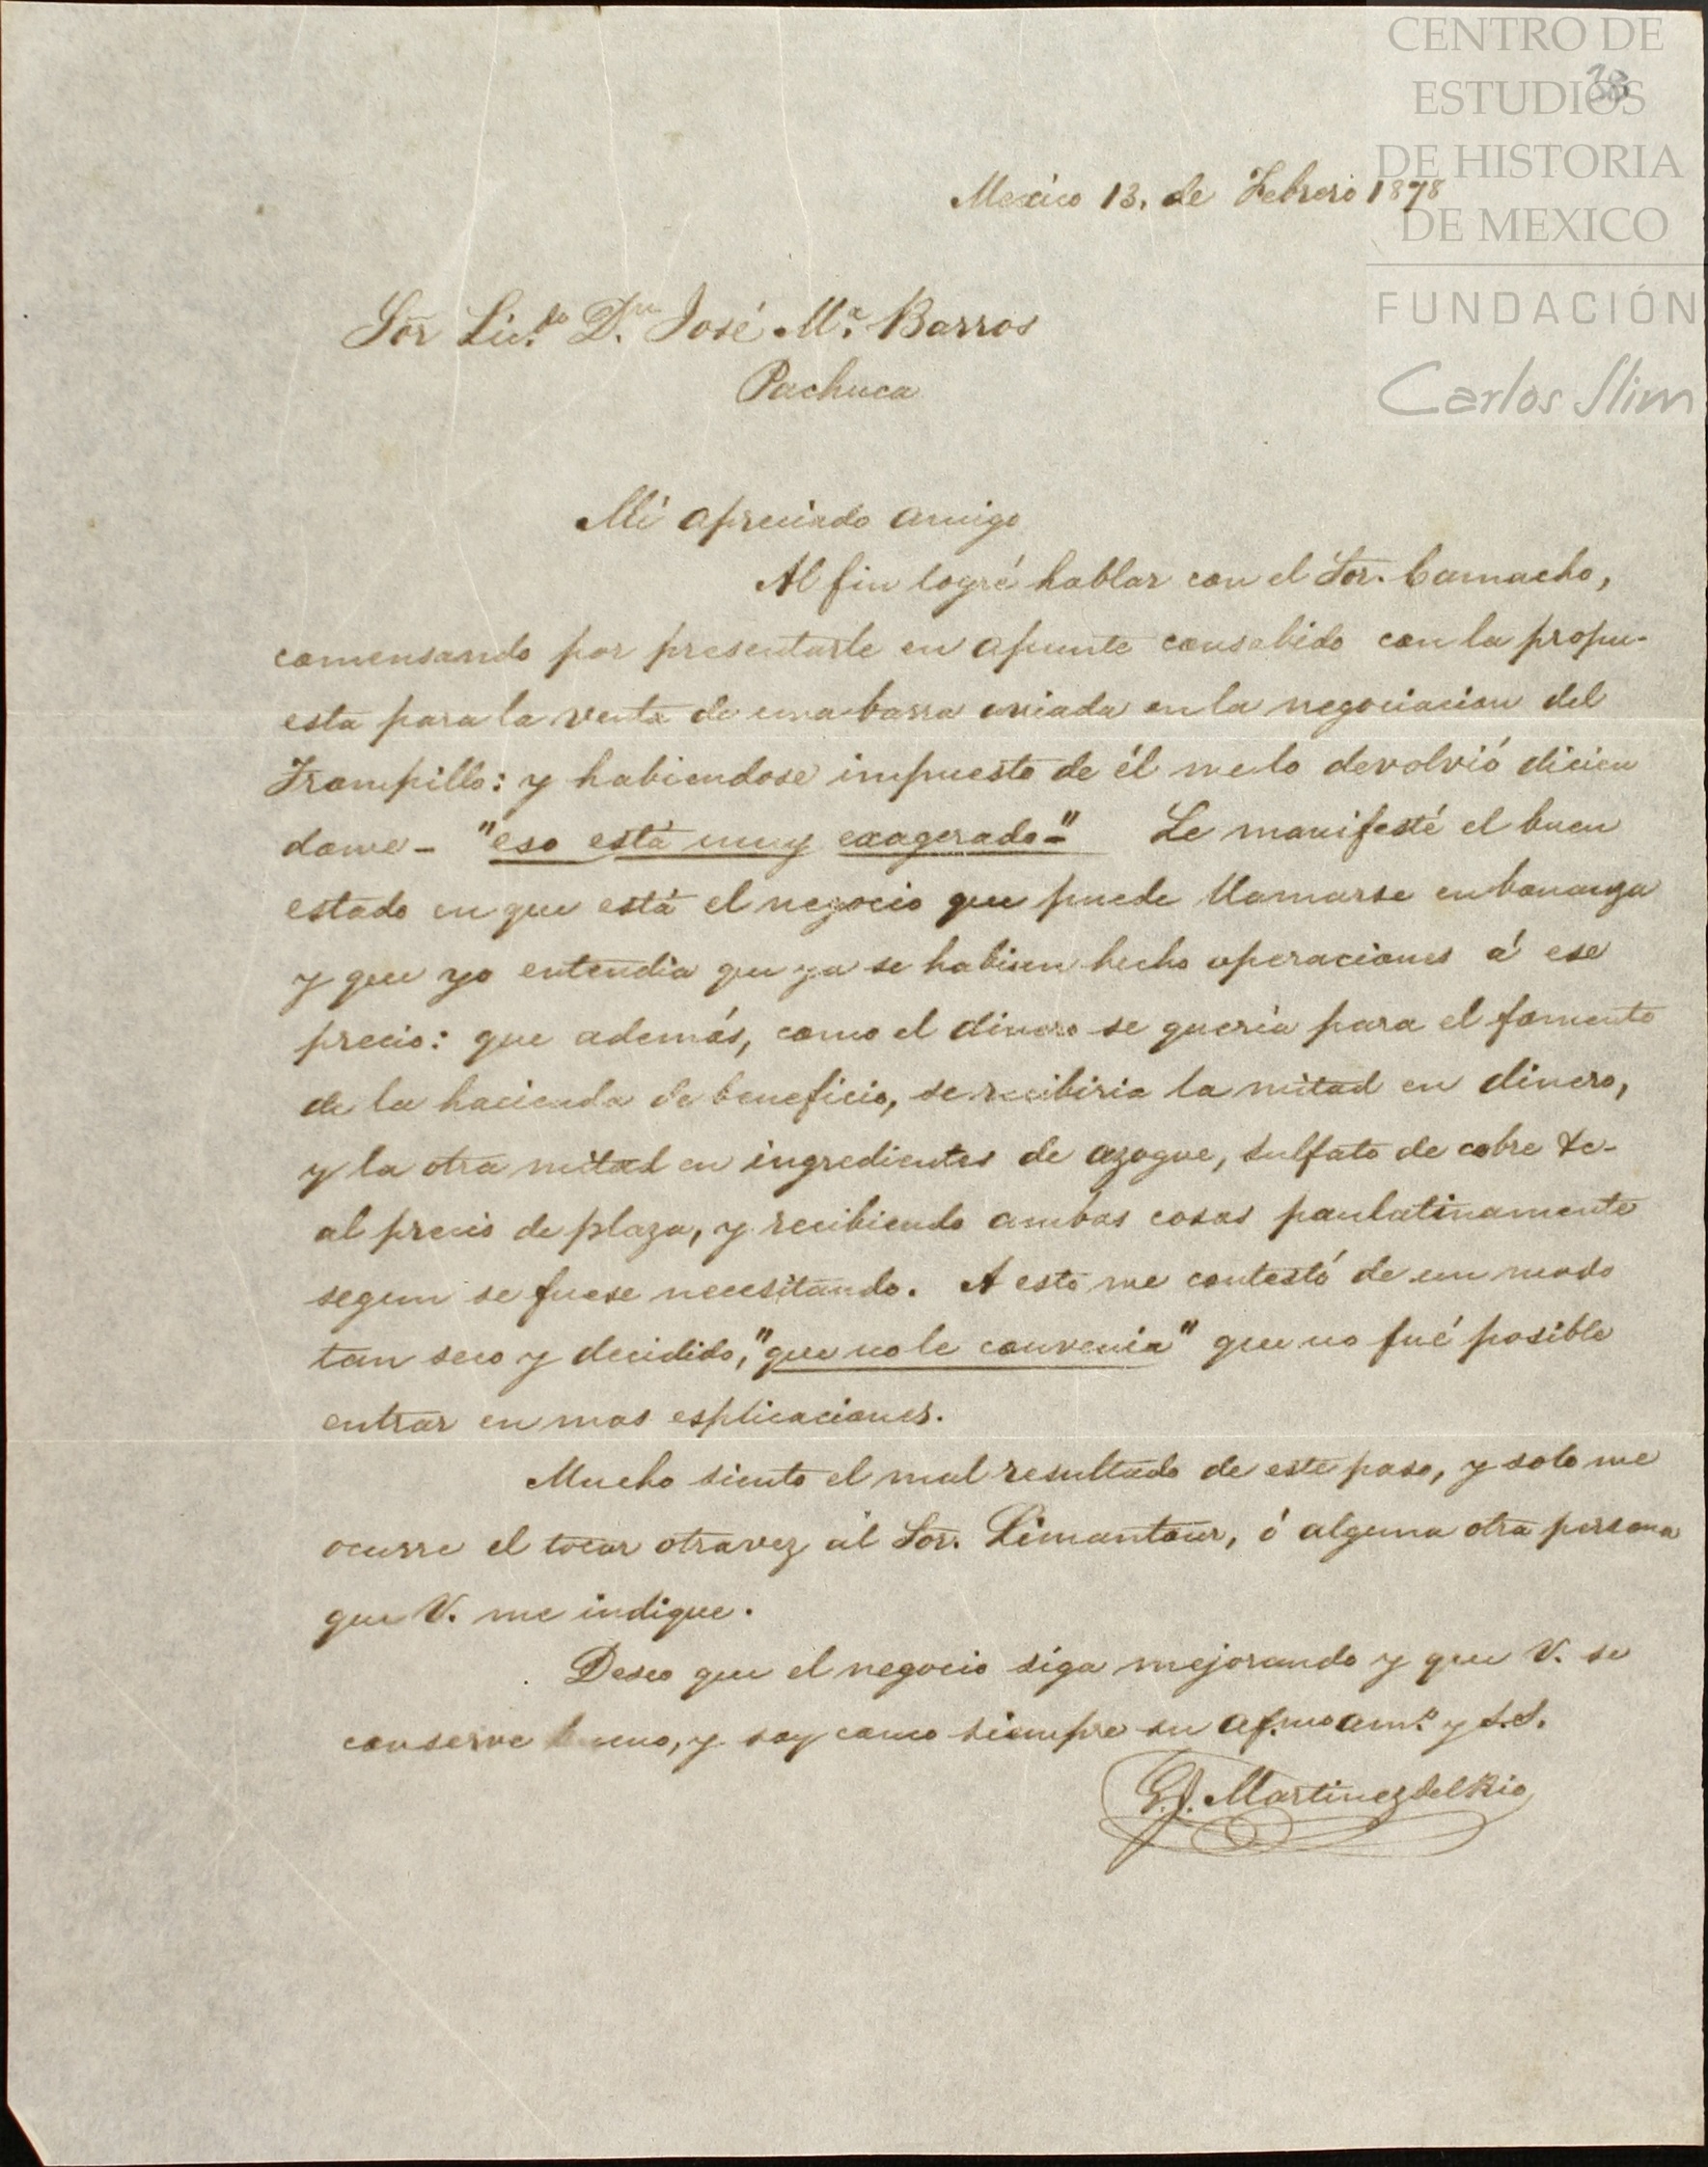 CENTRO DE
ESTUDIOS
DE HISTORIA
DE MEXICO
FUNDACIÓN
Carlos Slim
38
Mexico 13. de Febrero 1878
Sor Lic.do D.n José M.a Barros
Pachuca
Mi apreciado amigo
Al fin logré hablar con el Sor. Camacho,
comensando por presentarle en apunte consabido con la propu-
esta para la venta de una barra aviada en la negociacion del
Trompillo: y habiendose impuesto de él me lo devolvió dicien
dome - "eso está muy exagerado-" Le manifesté el buen
estado en que está el negocio que puede llamarse en bonanza
y que yo entendia que ya se habian hecho operaciones á ese
precio: que además, como el dinero se queria para el fomento
de la hacienda de beneficio, se recibiria la mitad en dinero,
y la otra mitad en ingredientes de azogue, sulfato de cobre &c-
al precio de plaza, y recibiendo ambas cosas paulatinamente
segun se fuese necesitando. A esto me contestó de un modo
tan seco y decidido, "que no le convenia" que no fué posible
entrar en mas esplicaciones.
Mucho siento el mal resultado de este paso, y solo me
ocurre el tocar otra vez al Sor. Limantour, ó alguna otra persona
que V. me indique.
Deseo que el negocio siga mejorando y que V. se
conserve bueno, y soy como siempre su af.mo am.o y s.s.
G.J. Martinez del Rio